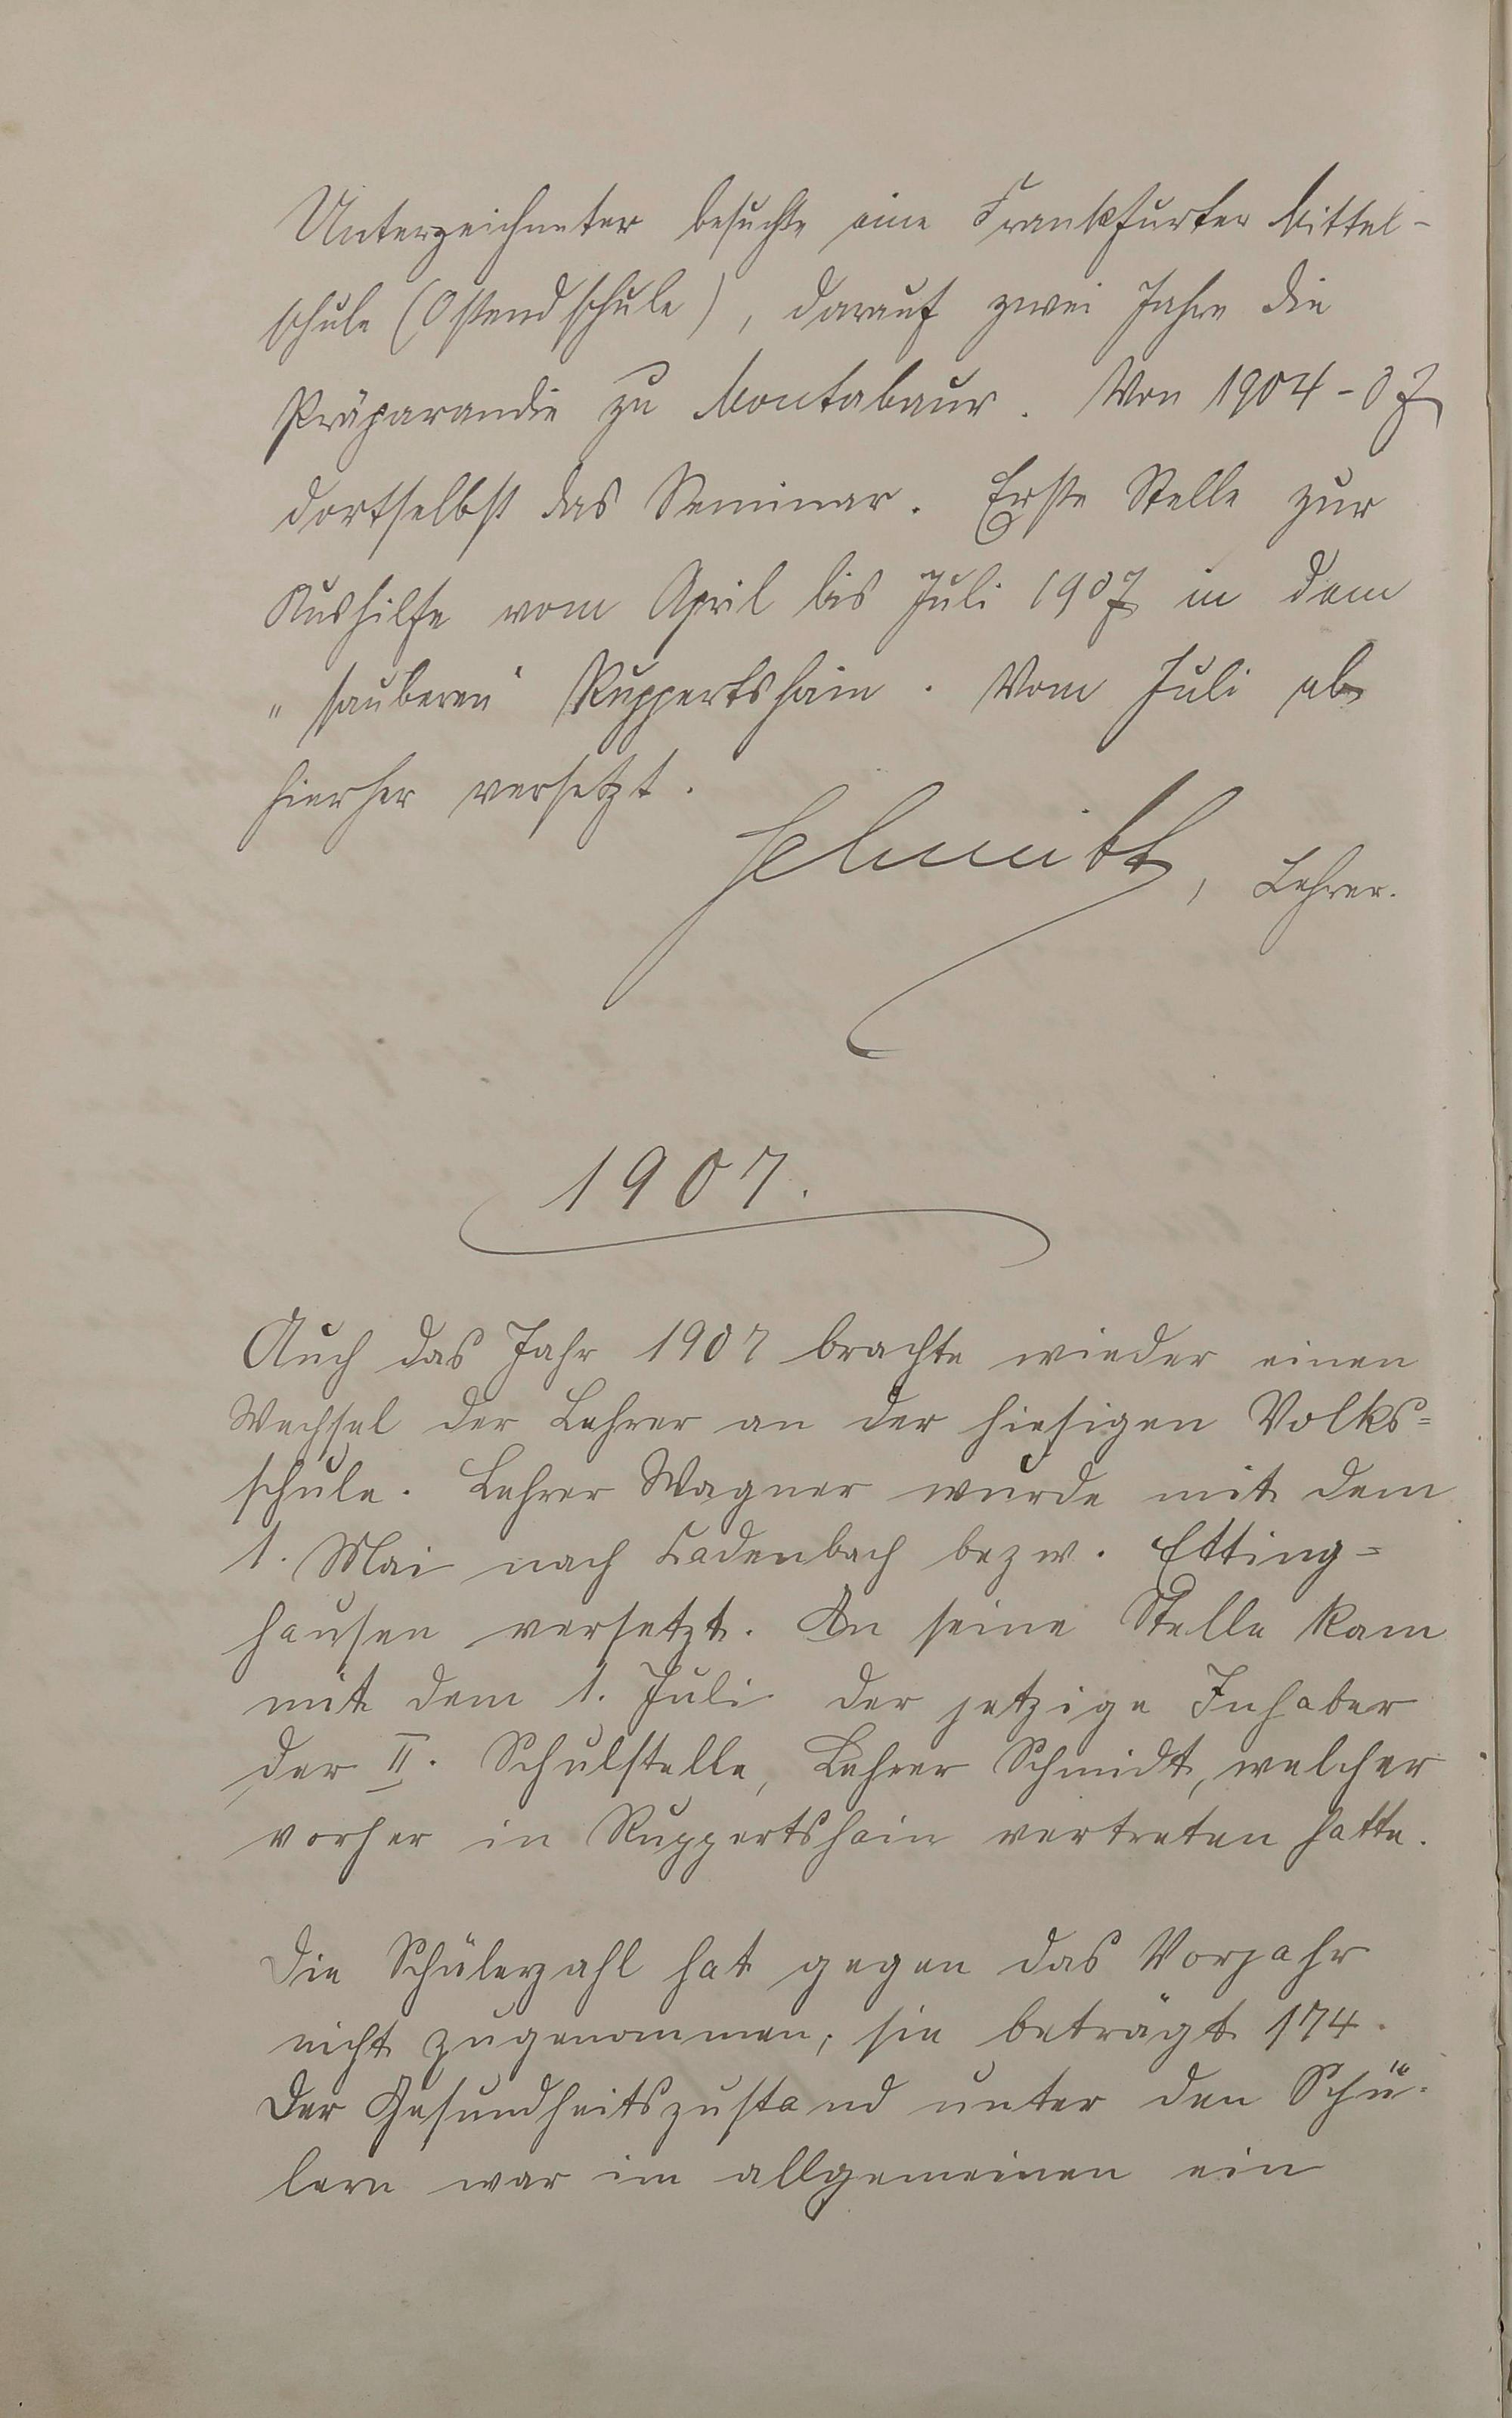 Unterzeichneter besuchte eine Frankfurter Mittel-
schule (Ostendschule), darauf zwei Jahre die
Präparandie zu Montabaur. Von 1904-07
dortselbst das Seminar. Erste Stelle zur
Aushilfe vom April bis Juli 1907 in dem
„sauberen“ Ruppertshain. Vom Juli ab
hierher versetzt.
Schmidt, Lehrer.
1907.
Auch das Jahr 1907 brachte wieder einen
Wechsel der Lehrer an der hiesigen Volks=
schule. Lehrer Wagner wurde mit dem
1. Mai nach Cadenbach bezw. Etting=
hausen versetzt. An seine Stelle kam
mit dem 1. Juli der jetzige Inhaber
der II. Schulstelle, Lehrer Schmidt, welcher
vorher in Ruppertshain vertreten hatte.
Die Schülerzahl hat gegen das Vorjahr
nicht zugenommen; sie beträgt 174.
Der Gesundheitszustand unter den Schü-
lern war im allgemeinen ein